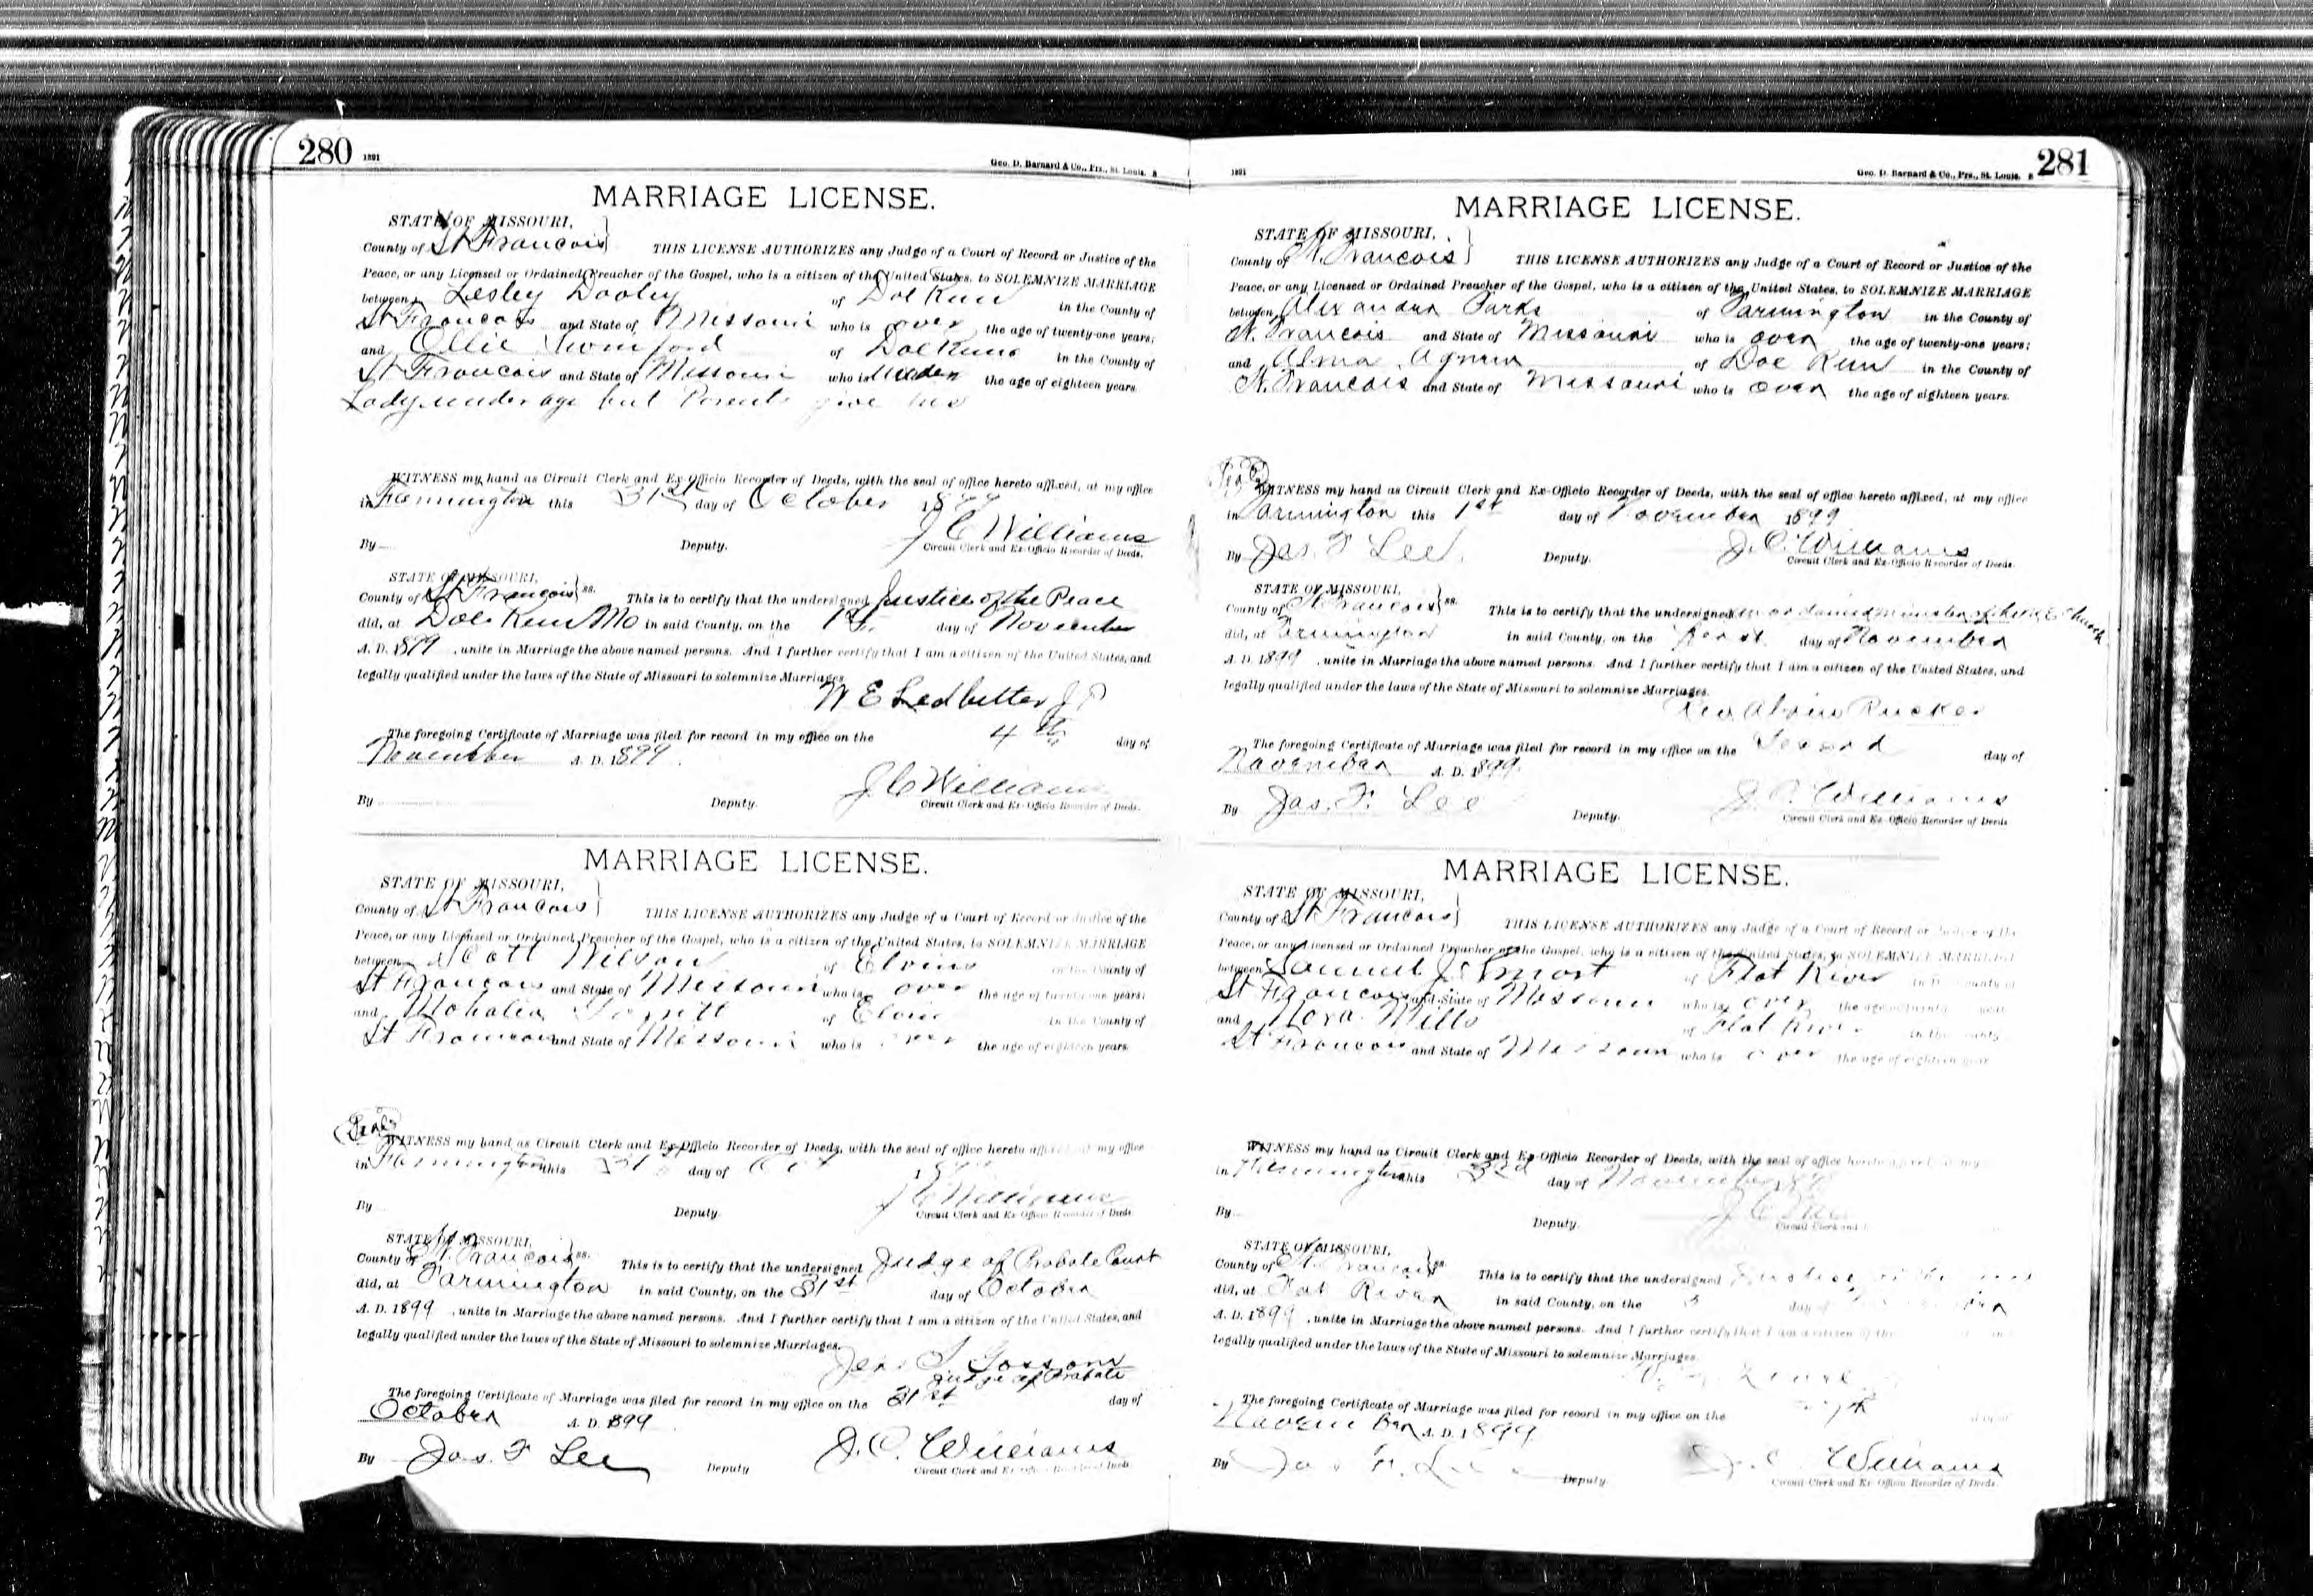 280 1891
Geo. D. Barnard & Co., Prs., St. Louis. B
MARRIAGE LICENSE.
STATE OF MISSOURI,
County of St Francois } THIS LICENSE AUTHORIZES any Judge of a Court of Record or Justice of the
Peace, or any Licensed or Ordained Preacher of the Gospel, who is a citizen of the United States, to SOLEMNIZE MARRIAGE
between Lesley Dooley of Doe Run in the County of
St Francois and State of Missouri who is over the age of twenty-one years;
and Ollie of Doe Run in the County of
St Francois and State of Missouri who is under the age of eighteen years.
Lady under age but Parents give
WITNESS my hand as Circuit Clerk and Ex-Officio Recorder of Deeds, with the seal of office hereto affixed, at my office
in Farmington this 31st day of October 1899
J C Williams
By Deputy. Circuit Clerk and Ex-Officio Recorder of Deeds.
STATE OF MISSOURI,
County of St Francois } ss. This is to certify that the undersigned Justice of the Peace
did, at Doe Run Mo in said County, on the 1st day of November
A. D. 1899, unite in Marriage the above named persons. And I further certify that I am a citizen of the United States, and
legally qualified under the laws of the State of Missouri to solemnize Marriages
W E Ledbetter J P
The foregoing Certificate of Marriage was filed for record in my office on the 4th day of
November A. D. 1899.
J C Williams
By Deputy. Circuit Clerk and Ex-Officio Recorder of Deeds.
MARRIAGE LICENSE.
STATE OF MISSOURI,
County of St Francois } THIS LICENSE AUTHORIZES any Judge of a Court of Record or Justice of the
Peace, or any Licensed or Ordained Preacher of the Gospel, who is a citizen of the United States, to SOLEMNIZE MARRIAGE
between Scott Wilson of Elvins in the County of
St Francois and State of Missouri who is over the age of twenty-one years;
and Mahalia of Elvins in the County of
St Francois and State of Missouri who is over the age of eighteen years.
Seal
WITNESS my hand as Circuit Clerk and Ex-Officio Recorder of Deeds, with the seal of office hereto affixed, at my office
in Farmington this 31 day of Oct 1899
J C Williams
By Deputy. Circuit Clerk and Ex-Officio Recorder of Deeds
STATE OF MISSOURI,
County of St. Francois } ss. This is to certify that the undersigned Judge of Probate Court
did, at Farmington in said County, on the 31st day of October
A. D. 1899, unite in Marriage the above named persons. And I further certify that I am a citizen of the United States, and
legally qualified under the laws of the State of Missouri to solemnize Marriages.
Judge of Probate
The foregoing Certificate of Marriage was filed for record in my office on the 31st day of
October A. D. 1899.
By Jas. F Lee Deputy J. C. Williams
Circuit Clerk and Ex-Officio Recorder of Deeds
1891
Geo. D. Barnard & Co., Prs., St. Louis. B 281
MARRIAGE LICENSE.
STATE OF MISSOURI,
County of St. Francois } THIS LICENSE AUTHORIZES any Judge of a Court of Record or Justice of the
Peace, or any Licensed or Ordained Preacher of the Gospel, who is a citizen of the United States, to SOLEMNIZE MARRIAGE
between Alexander Parks of Farmington in the County of
St. Francois and State of Missouri who is over the age of twenty-one years;
and Alma Agnew of Doe Run in the County of
St. Francois and State of Missouri who is over the age of eighteen years.
Seal
WITNESS my hand as Circuit Clerk and Ex-Officio Recorder of Deeds, with the seal of office hereto affixed, at my office
in Farmington this 1st day of November 1899
By Jas. F Lee. Deputy. J. C. Williams
Circuit Clerk and Ex-Officio Recorder of Deeds.
STATE OF MISSOURI,
County of St. Francois } ss. This is to certify that the undersigned an ordained minister of the M. E. Church
did, at Farmington in said County, on the first day of November
A. D. 1899, unite in Marriage the above named persons. And I further certify that I am a citizen of the United States, and
legally qualified under the laws of the State of Missouri to solemnize Marriages.
Rev Rucker
The foregoing Certificate of Marriage was filed for record in my office on the Second day of
November A. D. 1899.
By Jas. F. Lee Deputy. J. C. Williams
Circuit Clerk and Ex-Officio Recorder of Deeds
MARRIAGE LICENSE.
STATE OF MISSOURI,
County of St Francois } THIS LICENSE AUTHORIZES any Judge of a Court of Record or Justice of the
Peace, or any Licensed or Ordained Preacher of the Gospel, who is a citizen of the United States, to SOLEMNIZE MARRIAGE
between Samuel J. Smart of Flat River in the County of
St Francois and State of Missouri who is over the age of twenty years
and Nora Mills of Flat River in the County
St Francois and State of Missouri who is over the age of eighteen years
WITNESS my hand as Circuit Clerk and Ex-Officio Recorder of Deeds, with the seal of office hereto affixed at my
in Farmington this day of November 189
By Deputy. Circuit Clerk and
STATE OF MISSOURI,
County of St. Francois } ss. This is to certify that the undersigned Justice of the
did, at Flat River in said County, on the 3 day of
A. D. 1899, unite in Marriage the above named persons. And I further certify that I am a citizen of the
legally qualified under the laws of the State of Missouri to solemnize Marriages.
The foregoing Certificate of Marriage was filed for record in my office on the day of
November A. D. 1899.
By Jas F. Lee Deputy. J. C. Williams
Circuit Clerk and Ex-Officio Recorder of Deeds.